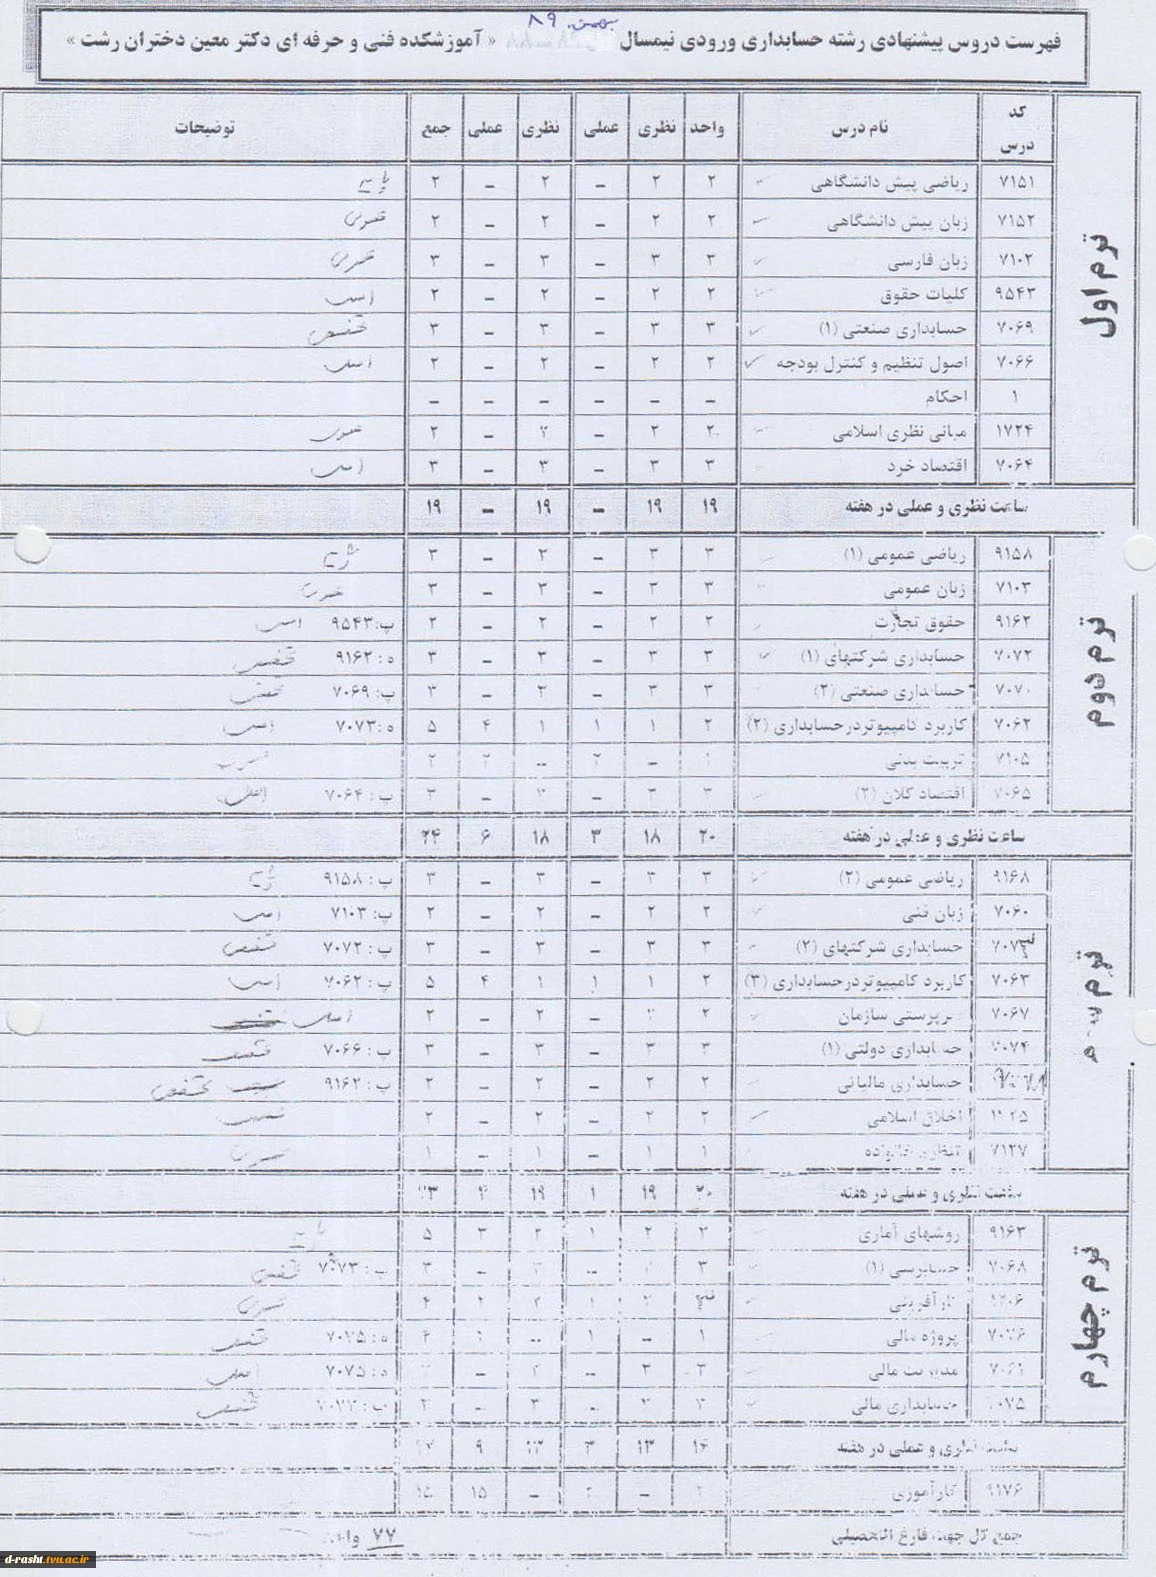 بهمن ۸۹
فهرست دروس پیشنهادی رشته حسابداری ورودی نیمسال « آموزشکده فنی و حرفه ای دکتر معین دختران رشت »
کد درس نام درس واحد نظری عملی نظری عملی جمع توضیحات
ترم اول
۷۱۵۱ ریاضی پیش دانشگاهی ۲ ۲ – ۲ – ۲ پایه
۷۱۵۲ زبان پیش دانشگاهی ۲ ۲ – ۲ – ۲ عمومی
۷۱۰۲ زبان فارسی ۳ ۳ – ۳ – ۳ عمومی
۹۵۴۳ کلیات حقوق ۲ ۲ – ۲ – ۲ اصلی
۷۰۶۹ حسابداری صنعتی (۱) ۳ ۳ – ۳ – ۳ تخصصی
۷۰۶۶ اصول تنظیم و کنترل بودجه ۲ ۲ – ۲ – ۲ اصلی
۱ احکام – – – – – –
۱۷۲۴ مبانی نظری اسلامی ۲ ۲ – ۲ – ۲ عمومی
۷۰۶۴ اقتصاد خرد ۳ ۳ – ۳ – ۳ اصلی
ساعت نظری و عملی در هفته ۱۹ ۱۹ – ۱۹ – ۱۹
ترم دوم
۹۱۵۸ ریاضی عمومی (۱) ۳ ۳ – ۳ – ۳ پایه
۷۱۰۳ زبان عمومی ۳ ۳ – ۳ – ۳ عمومی
۹۱۶۲ حقوق تجارت ۲ ۲ – ۲ – ۲ پ:۹۵۴۳ اصلی
۷۰۷۲ حسابداری شرکتهای (۱) ۳ ۳ – ۳ – ۳ ه:۹۱۶۲ تخصصی
۷۰۷۰ حسابداری صنعتی (۲) ۳ ۳ – ۳ – ۳ پ:۷۰۶۹ تخصصی
۷۰۶۲ کاربرد کامپیوتردرحسابداری (۲) ۲ ۱ ۱ ۱ ۴ ۵ ه:۷۰۷۳ اصلی
۷۱۰۵ تربیت بدنی ۱ – ۲ ۲ عمومی
۷۰۶۵ اقتصاد کلان (۲) ۳ ۳ – ۳ – ۳ پ:۷۰۶۴ اصلی
ساعت نظری و عملی در هفته ۲۰ ۱۸ ۳ ۱۸ ۶ ۲۴
ترم سوم
۹۱۶۸ ریاضی عمومی (۲) ۳ ۳ – ۳ – ۳ پ:۹۱۵۸ پایه
۷۰۶۰ زبان فنی ۲ ۲ – ۲ – ۲ پ:۷۱۰۳ اصلی
۷۰۷۳ حسابداری شرکتهای (۲) ۳ ۳ – ۳ – ۳ پ:۷۰۷۲ تخصصی
۷۰۶۳ کاربرد کامپیوتردرحسابداری (۳) ۲ ۱ ۱ ۱ ۴ ۵ پ:۷۰۶۲ اصلی
۷۰۶۷ سرپرستی سازمان ۲ ۲ – ۲ – ۲ اصلی
۷۰۷۴ حسابداری دولتی (۱) ۳ ۳ – ۳ – ۳ پ:۷۰۶۶ تخصصی
حسابداری مالیاتی ۲ ۲ – ۲ – ۲ پ:۹۱۶۲ تخصصی
اخلاق اسلامی ۲ ۲ – ۲ – ۲ عمومی
۷۱۲۷ تنظیم خانواده ۱ ۱ – ۱ – ۱ عمومی
ساعت نظری و عملی در هفته ۲۰ ۱۹ ۱ ۱۹ ۴ ۲۳
ترم چهارم
۹۱۶۳ روشهای آماری ۳ ۲ ۱ ۲ ۳ ۵ پایه
۷۰۶۸ حسابرسی (۱) ۳ – ۳ پ:۷۰۷۳ تخصصی
کارآفرینی ۲ ۱ ۲ ۲ ۴ عمومی
پروژه مالی ۱ – ۱ ه:۷۰۷۵ تخصصی
۷۰۶۱ مدیریت مالی ۲ ۲ – ه:۷۰۷۵ اصلی
۷۰۷۵ حسابداری مالی ۳ – ۳ تخصصی
ساعت نظری و عملی در هفته ۱۶ ۱۳ ۳ ۹
۹۱۷۶ کارآموزی ۲ – ۲ – ۱۵ ۱۵
جمع کل جهت فارغ التحصیلی ۷۷ واحد
d-rasht.tvu.ac.ir